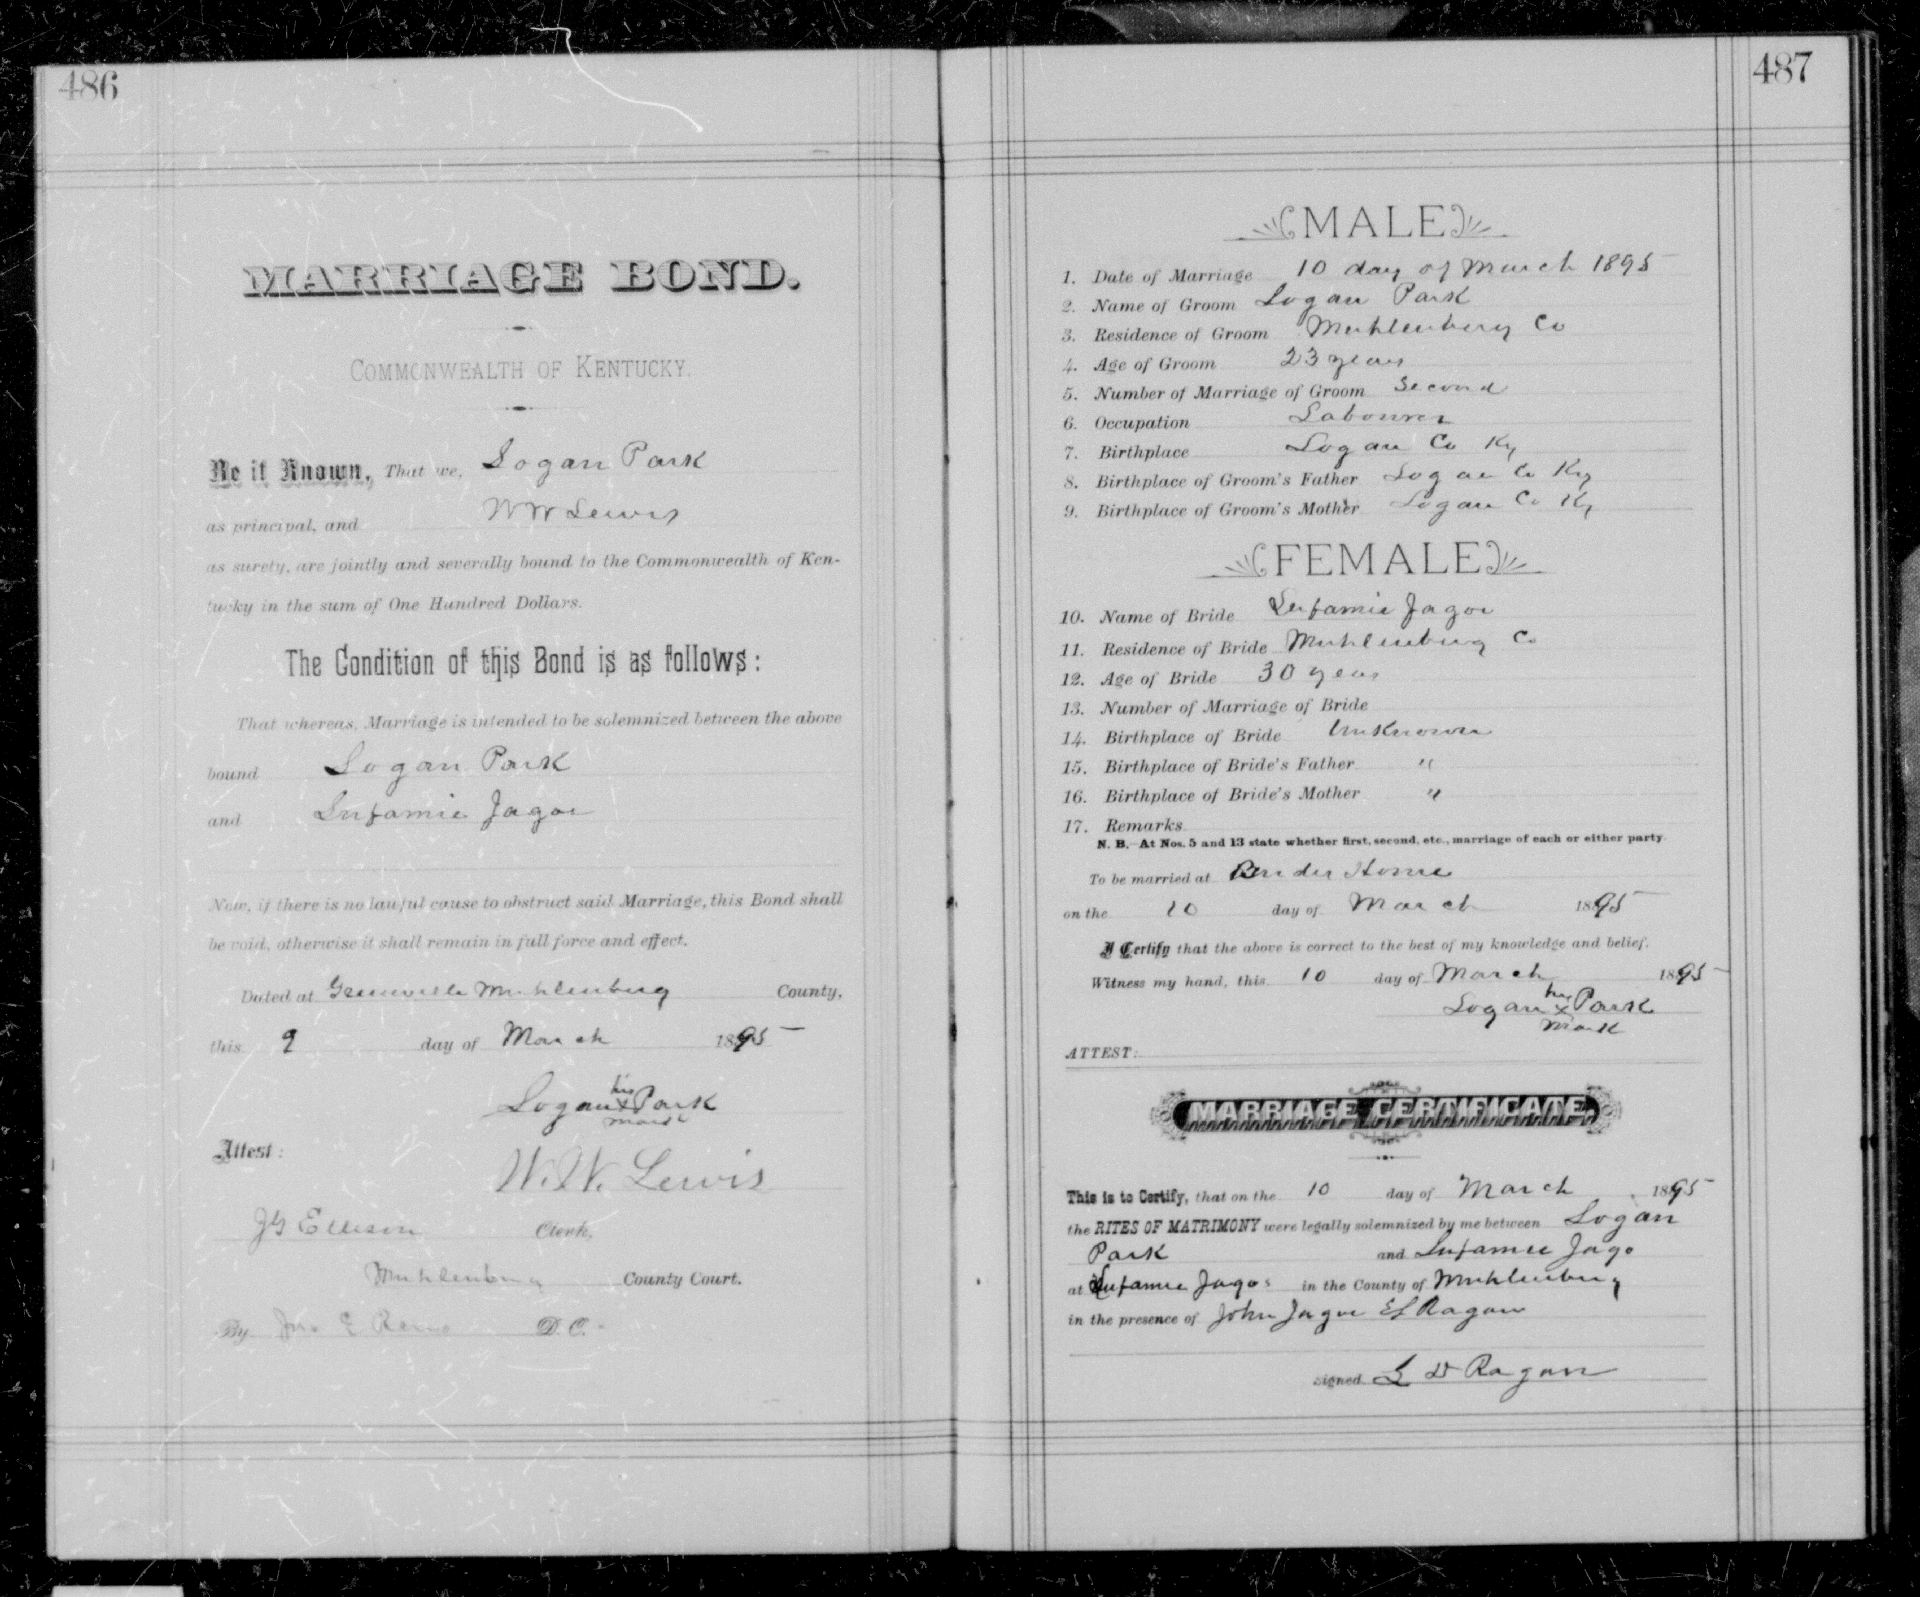 486
MARRIAGE BOND.
COMMONWEALTH OF KENTUCKY.
Be it Known, That we, Logan Park
as principal, and W W Lewis
as surety, are jointly and severally bound to the Commonwealth of Ken-
tucky in the sum of One Hundred Dollars.
The Condition of this Bond is as follows:
That whereas, Marriage is intended to be solemnized between the above
bound Logan Park
and Lufamie Jagoe
Now, if there is no lawful cause to obstruct said Marriage, this Bond shall
be void, otherwise it shall remain in full force and effect.
Dated at Greenville Muhlenburg County,
this 9 day of March 1895
his
Logan x Park
mark
Attest:
W. W. Lewis
JG Ellison Clerk,
Muhlenburg County Court.
By Jno E Reno D.C.
487
MALE
1. Date of Marriage 10 day of March 1895
2. Name of Groom Logan Park
3. Residence of Groom Muhlenburg Co
4. Age of Groom 23 years
5. Number of Marriage of Groom Second
6. Occupation Labourer
7. Birthplace Logan Co Ky
8. Birthplace of Groom's Father Logan Co Ky
9. Birthplace of Groom's Mother Logan Co Ky
FEMALE
10. Name of Bride Lufamie Jagoe
11. Residence of Bride Muhlenburg Co
12. Age of Bride 30 years
13. Number of Marriage of Bride
14. Birthplace of Bride Unknown
15. Birthplace of Bride's Father "
16. Birthplace of Bride's Mother "
17. Remarks
N. B.—At Nos. 5 and 13 state whether first, second, etc., marriage of each or either party.
To be married at Brides Home
on the 10 day of March 1895
I Certify that the above is correct to the best of my knowledge and belief.
Witness my hand, this 10 day of March 1895
his
Logan x Park
mark
ATTEST:
MARRIAGE CERTIFICATE.
This is to Certify, that on the 10 day of March 1895
the RITES OF MATRIMONY were legally solemnized by me between Logan
Park and Lufamie Jago
at Lufamie Jagos in the County of Muhlenburg
in the presence of John Jagoe E L Ragan
signed L D Ragan